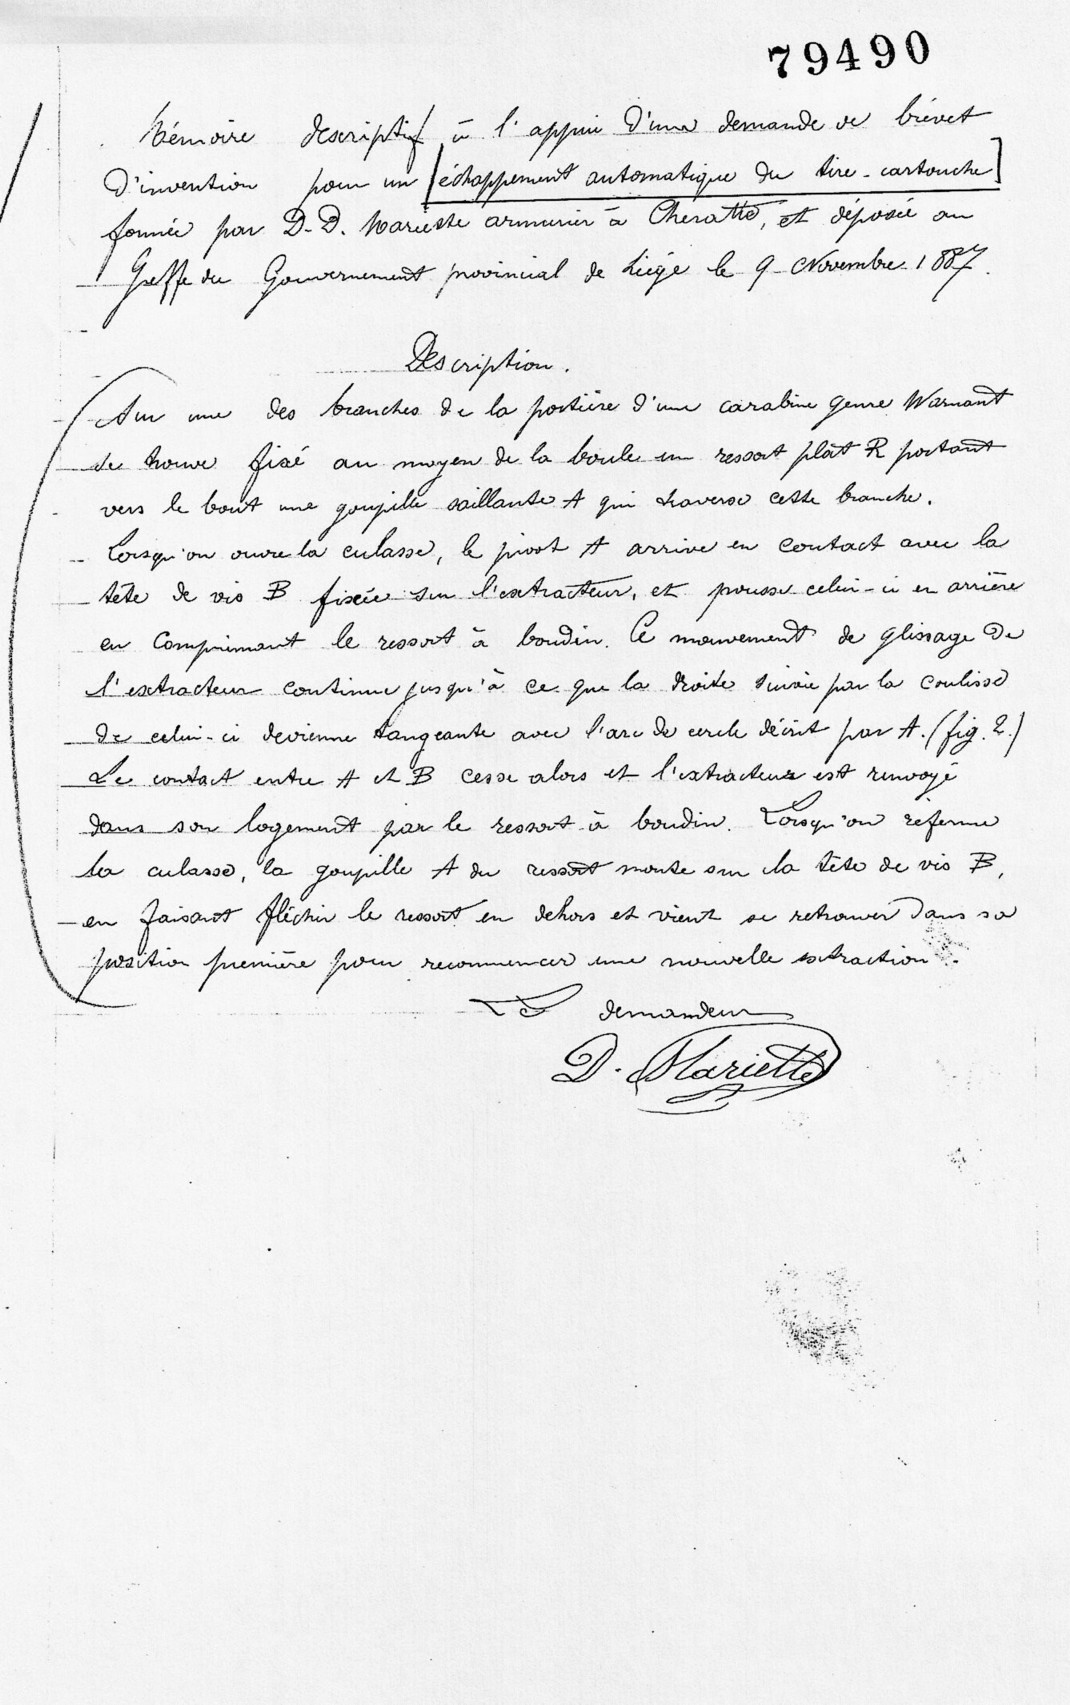 79490
Mémoire descriptif à l'appui d'une demande de brévet
d'invention pour un [échappement automatique du tire-cartouche]
formée par D-D. Mariette armurier à Cheratte, et déposée au
Greffe du Gouvernement provincial de Liége le 9 Novembre 1887.
Description.
Sur une des branches de la portière d'une carabine genre Warnant
se trouve fixé au moyen de la boule un ressort plat R portant
vers le bout une goupille saillante A qui traverse cette branche.
Lorsqu'on ouvre la culasse, le pivot A arrive en contact avec la
tête de vis B fixée sur l'extracteur, et pousse celui-ci en arrière
en comprimant le ressort à boudin. Ce mouvement de glissage de
l'extracteur continue jusqu'à ce que la droite suivie par la coulisse
de celui-ci devienne tangeante avec l'arc de cercle décrit par A. (fig. 2.)
Le contact entre A et B cesse alors et l'extracteur est renvoyé
dans son logement par le ressort à boudin. Lorsqu'on referme
la culasse, la goupille A du ressort monte sur la tête de vis B,
en faisant fléchir le ressort en dehors et vient se retrouver dans sa
position première pour recommencer une nouvelle extraction.
Le demandeur
D. Mariette